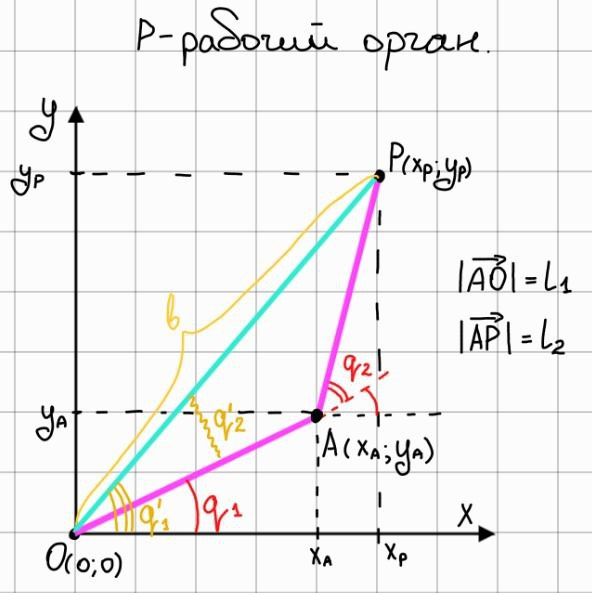 P-рабочий орган.
y
yₚ
P(xₚ;yₚ)
b
|AO|=L₁
|AP|=L₂
q₂
y_A
q'₂
A(x_A;y_A)
q'₁
q₁
x
O(0;0)
x_A
xₚ